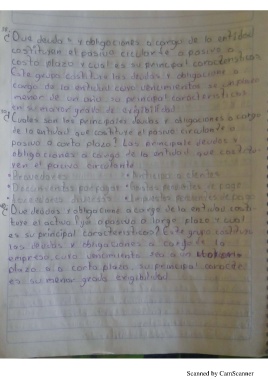 ¿Que deudas y obligaciones a cargo de la entidad
constituyen el pasivo circulante o pasivo a
corto plazo y cual es su principal caracteristica
Este grupo constituye las deudas y obligaciones a
cargo de la entidad cuyo vencimiento es
menor de un año su principal caracteristica
es su mayor grado de exigibilidad
¿Cuales son las principales deudas e obligaciones a cargo
de la entidad que constituye el pasivo circulante o
pasivo a corto plazo? Las principales deudas y
obligaciones a cargo de la entidad que
el pasivo circulante
• Proveedores • Anticipos a clientes
• Documentos por pagar • Gastos por pago
• Acreedores • Impuestos por pago
¿Que deudas y obligaciones a cargo de la entidad
pasivo a largo plazo y cual
es su principal caracteristica? Este grupo
las deudas y obligaciones a cargo de la
empresa, cuyo vencimiento sea a un
plazo a corto plazo, su principal
es su menor grado exigibilidad
Scanned by CamScanner